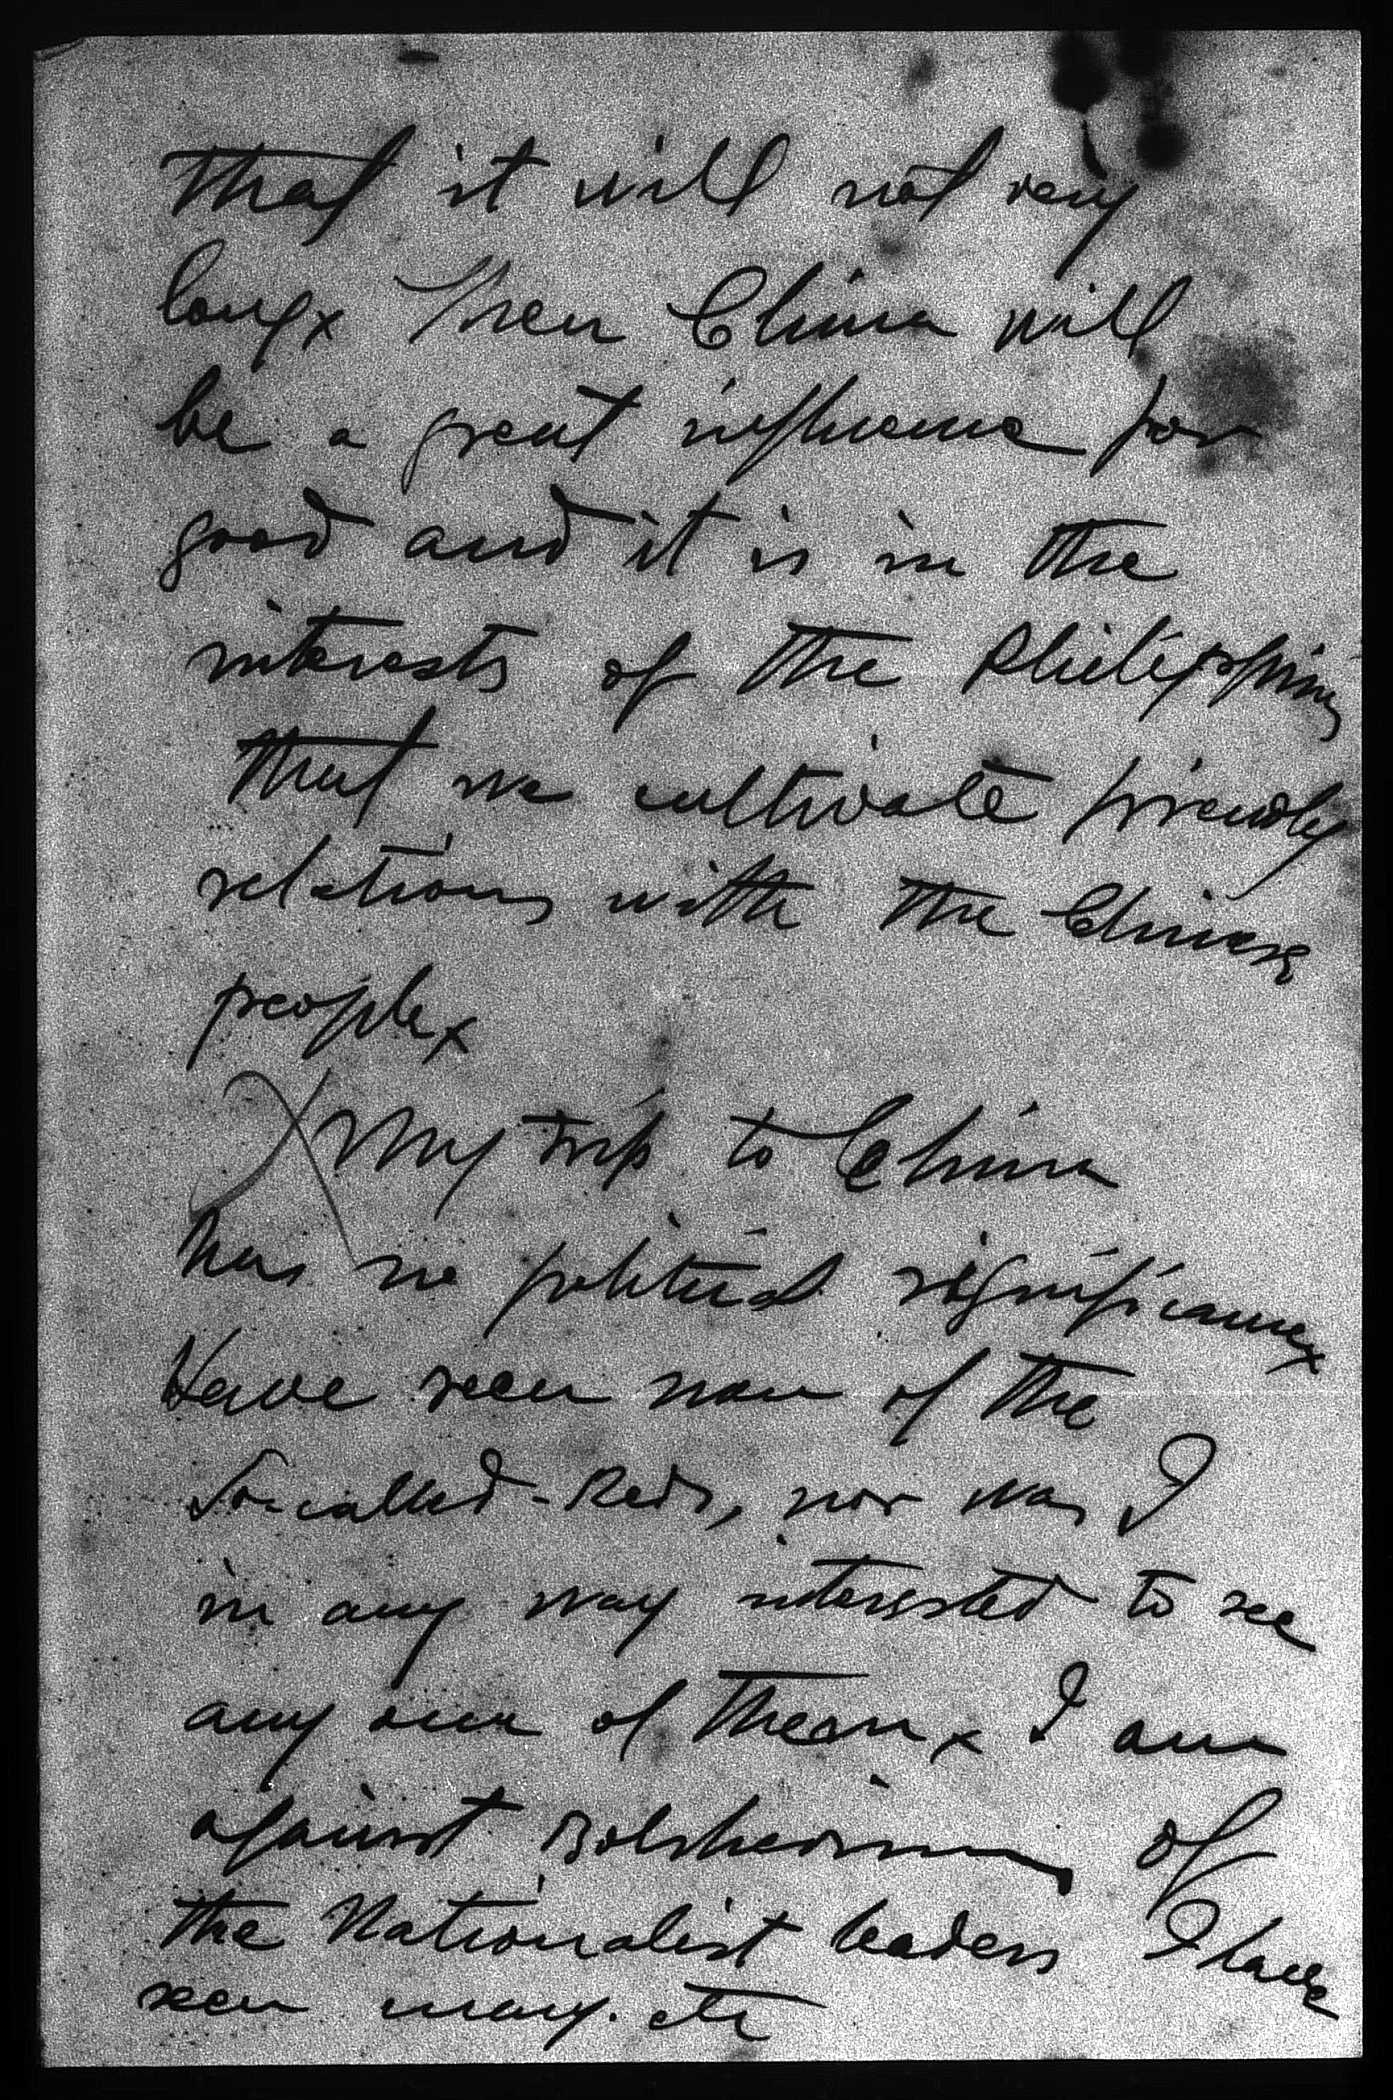 that it will not very
long x then China will
be a great influence for
good and it is in the
interests of the Philippines
that we cultivate friendly
relations with the Chinese
people x
X My trip to China
has no political significance x
Have seen none of the
so-called - Reds, nor was I
in any way interested to see
any one of them x I am
against Bolshevism, Of
the Nationalist leaders I have
seen many. etc